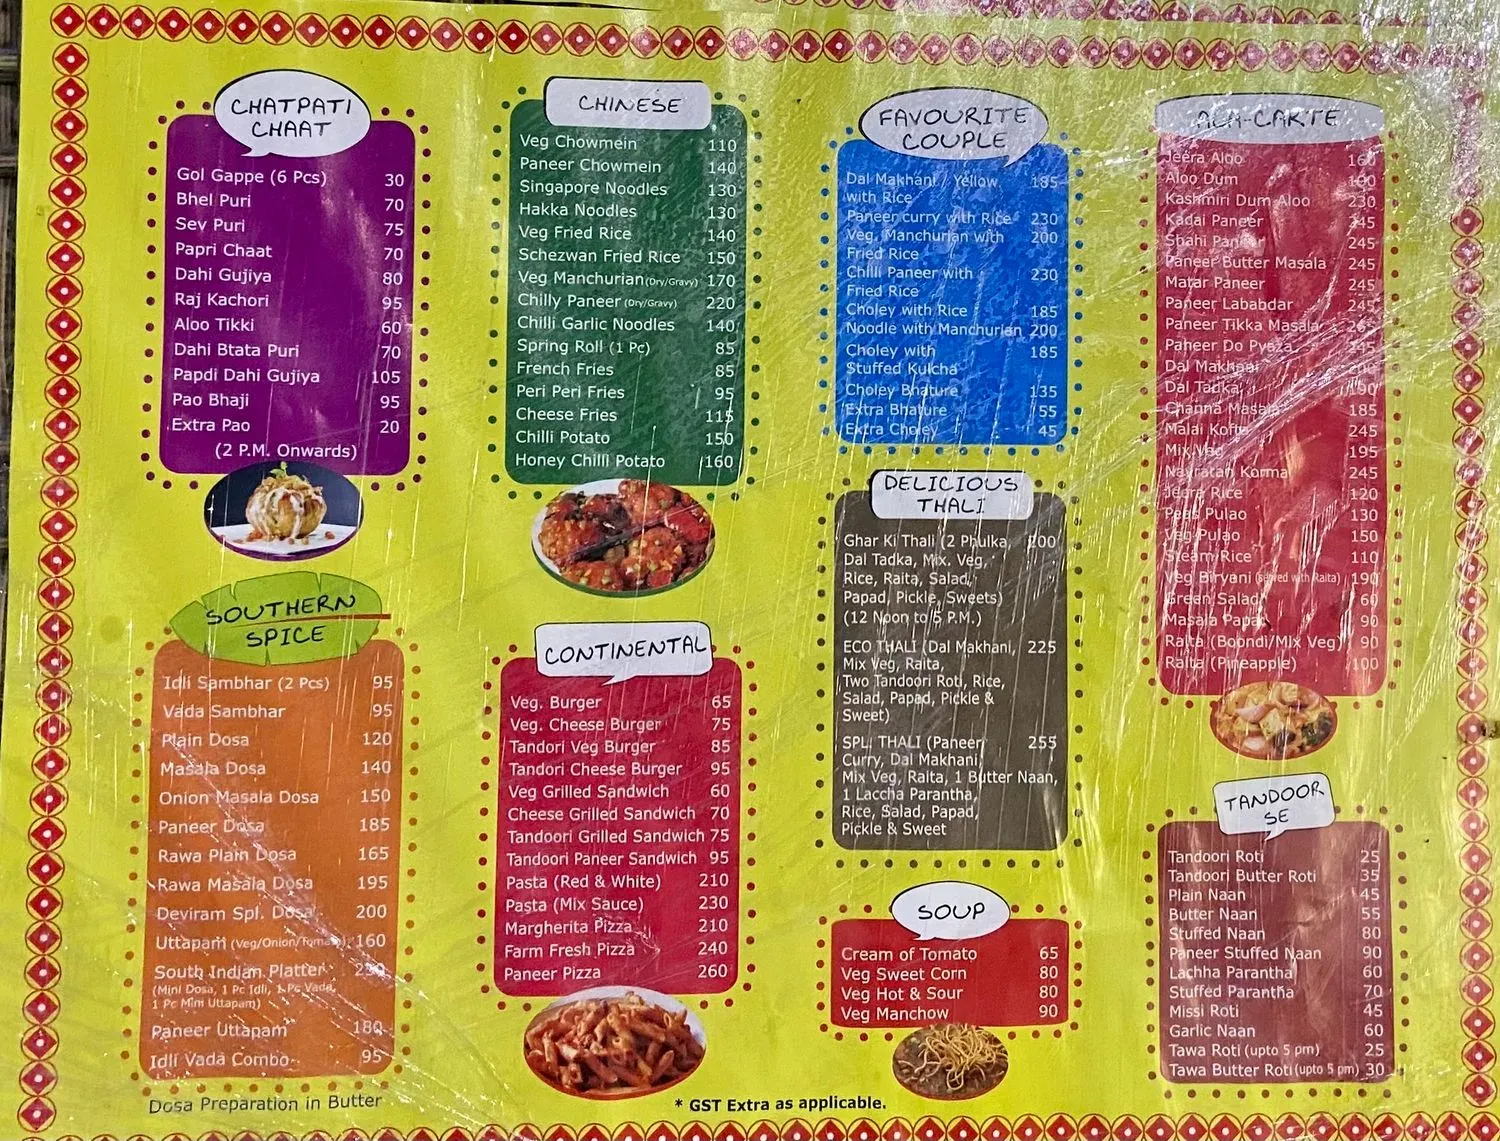 CHATPATI
CHAAT
Gol Gappe (6 Pcs) 30
Bhel Puri 70
Sev Puri 75
Papri Chaat 70
Dahi Gujiya 80
Raj Kachori 95
Aloo Tikki 60
Dahi Btata Puri 70
Papdi Dahi Gujiya 105
Pao Bhaji 95
Extra Pao 20
(2 P.M. Onwards)
SOUTHERN
SPICE
Idli Sambhar (2 Pcs) 95
Vada Sambhar 95
Plain Dosa 120
Masala Dosa 140
Onion Masala Dosa 150
Paneer Dosa 185
Rawa Plain Dosa 165
Rawa Masala Dosa 195
Deviram Spl. Dosa 200
Uttapam (Veg/Onion/Tomato) 160
South Indian Platter
(Mini Dosa, 1 Pc Idli, 1 Pc Vada,
1 Pc Mini Uttapam)
Paneer Uttapam 180
Idli Vada Combo 95
Dosa Preparation in Butter
CHINESE
Veg Chowmein 110
Paneer Chowmein 140
Singapore Noodles 130
Hakka Noodles 130
Veg Fried Rice 140
Schezwan Fried Rice 150
Veg Manchurian (Dry/Gravy) 170
Chilly Paneer (Dry/Gravy) 220
Chilli Garlic Noodles 140
Spring Roll (1 Pc) 85
French Fries 85
Peri Peri Fries 95
Cheese Fries 115
Chilli Potato 150
Honey Chilli Potato 160
CONTINENTAL
Veg. Burger 65
Veg. Cheese Burger 75
Tandori Veg Burger 85
Tandori Cheese Burger 95
Veg Grilled Sandwich 60
Cheese Grilled Sandwich 70
Tandoori Grilled Sandwich 75
Tandoori Paneer Sandwich 95
Pasta (Red & White) 210
Pasta (Mix Sauce) 230
Margherita Pizza 210
Farm Fresh Pizza 240
Paneer Pizza 260
FAVOURITE
COUPLE
Dal Makhani / Yellow 185
with Rice
Paneer curry with Rice 230
Veg. Manchurian with 200
Fried Rice
Chilli Paneer with 230
Fried Rice
Choley with Rice 185
Noodle with Manchurian 200
Choley with 185
Stuffed Kulcha
Choley Bhature 135
Extra Bhature 55
Extra Choley 45
DELICIOUS
THALI
Ghar Ki Thali (2 Phulka, 200
Dal Tadka, Mix. Veg,
Rice, Raita, Salad,
Papad, Pickle, Sweets)
(12 Noon to 5 P.M.)
ECO THALI (Dal Makhani, 225
Mix Veg, Raita,
Two Tandoori Roti, Rice,
Salad, Papad, Pickle &
Sweet)
SPL. THALI (Paneer 255
Curry, Dal Makhani,
Mix Veg, Raita, 1 Butter Naan,
1 Laccha Parantha,
Rice, Salad, Papad,
Pickle & Sweet
SOUP
Cream of Tomato 65
Veg Sweet Corn 80
Veg Hot & Sour 80
Veg Manchow 90
ALA-CARTE
Jeera Aloo 160
Aloo Dum
Kashmiri Dum Aloo 230
Kadai Paneer 245
Shahi Paneer 245
Paneer Butter Masala 245
Matar Paneer 245
Paneer Lababdar 245
Paneer Tikka Masala
Paneer Do Pyaza
Dal Makhani
Dal Tadka
Channa Masala 185
Malai Kofta 245
Mix Veg 195
Navratan Korma 245
Jeera Rice 120
Peas Pulao 130
Veg Pulao 150
Steam Rice 110
Veg Biryani (Served with Raita) 190
Green Salad 60
Masala Papad 90
Raita (Boondi/Mix Veg) 90
Raita (Pineapple) 100
TANDOOR
SE
Tandoori Roti 25
Tandoori Butter Roti 35
Plain Naan 45
Butter Naan 55
Stuffed Naan 80
Paneer Stuffed Naan 90
Lachha Parantha 60
Stuffed Parantha 70
Missi Roti 45
Garlic Naan 60
Tawa Roti (upto 5 pm) 25
Tawa Butter Roti (upto 5 pm) 30
* GST Extra as applicable.